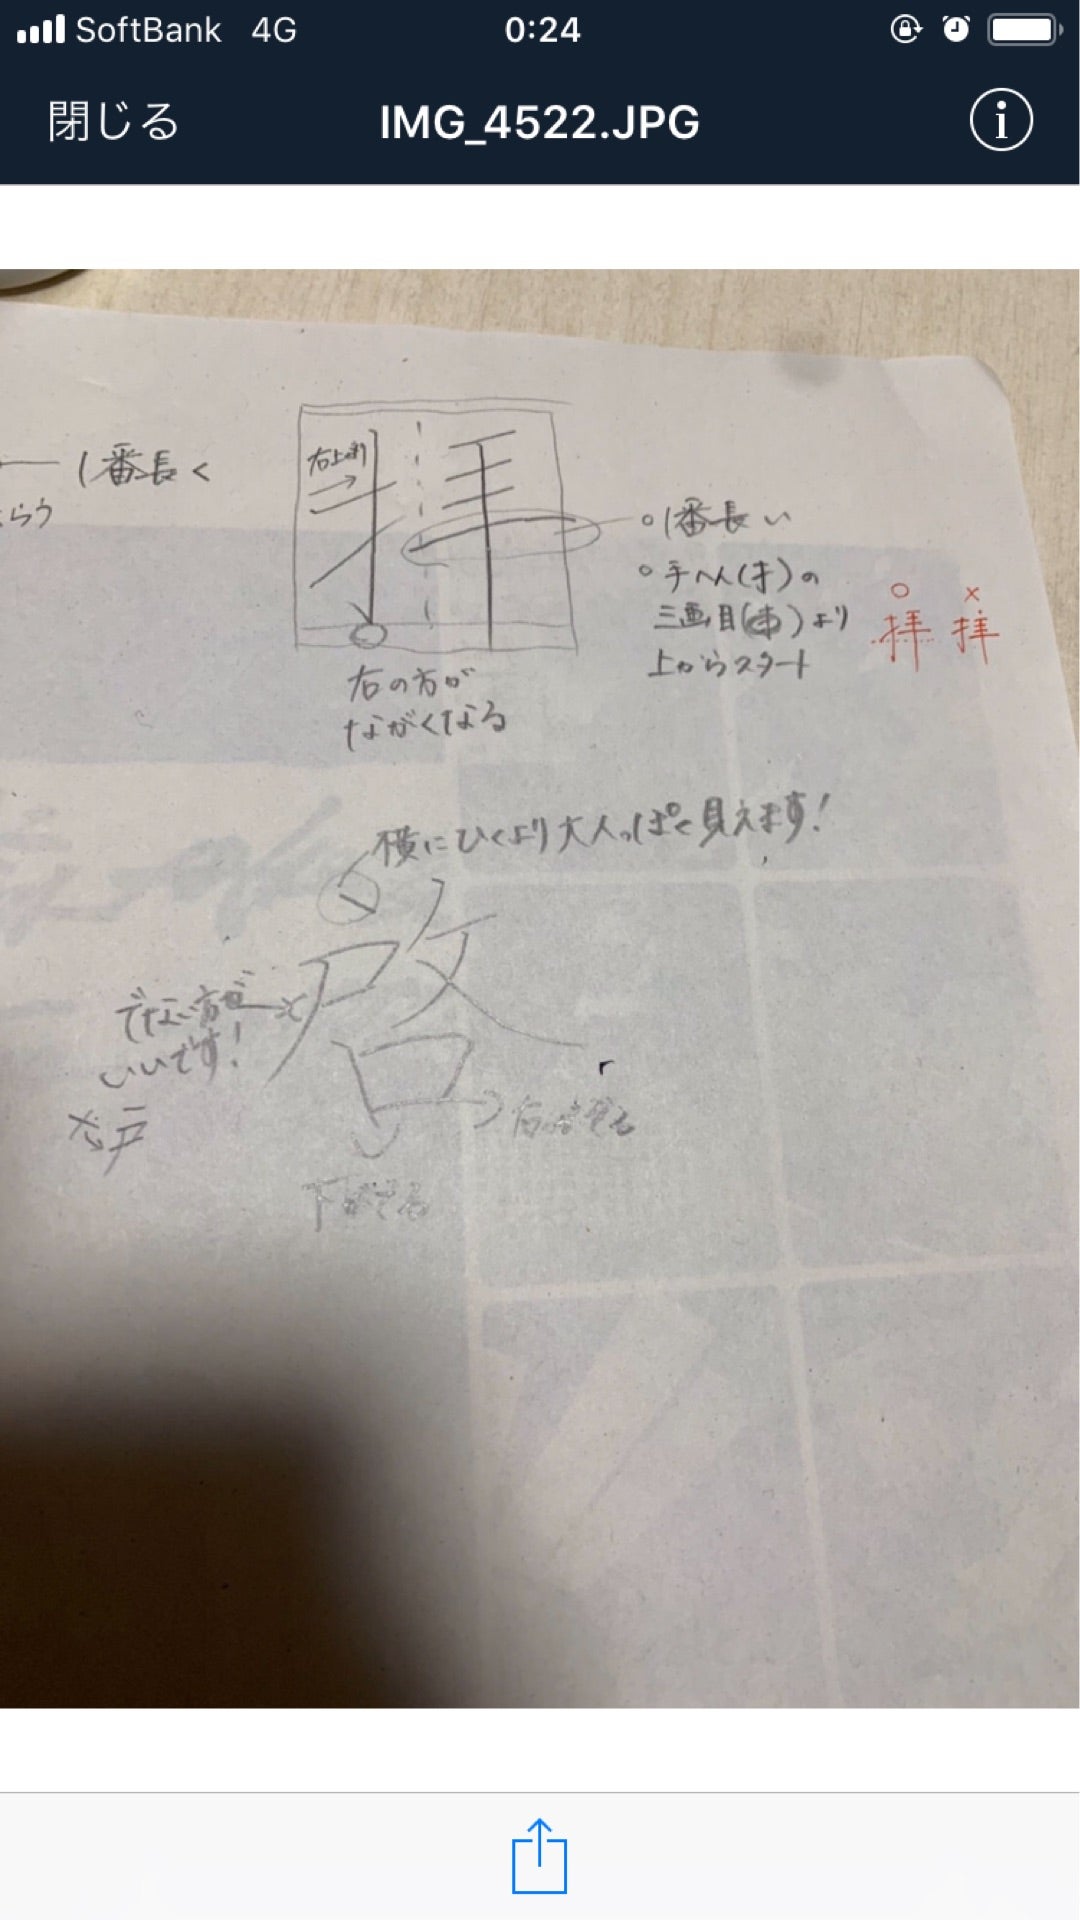 SoftBank 4G 0:24
閉じる IMG_4522.JPG
1番長く
らう
右上がり
拝
○1番長い
○手へん(扌)の
三画目(扌)より
上からスタート
○ ×
拝 拝
右の方が
ながくなる
横にひくより大人っぽく見えます!
啓
でない方が
いいです!
× 戸
下がでる